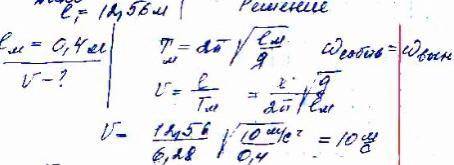 ℓ₁ = 12,56м Решение
ℓм = 0,4м Tм = 2π √(ℓм/g) ωсобств = ωвын
v - ? v = ℓ/Tм = x/2π √(g/ℓм)
v = 12,56/6,28 √(10 м/с²/0,4) = 10 м/с